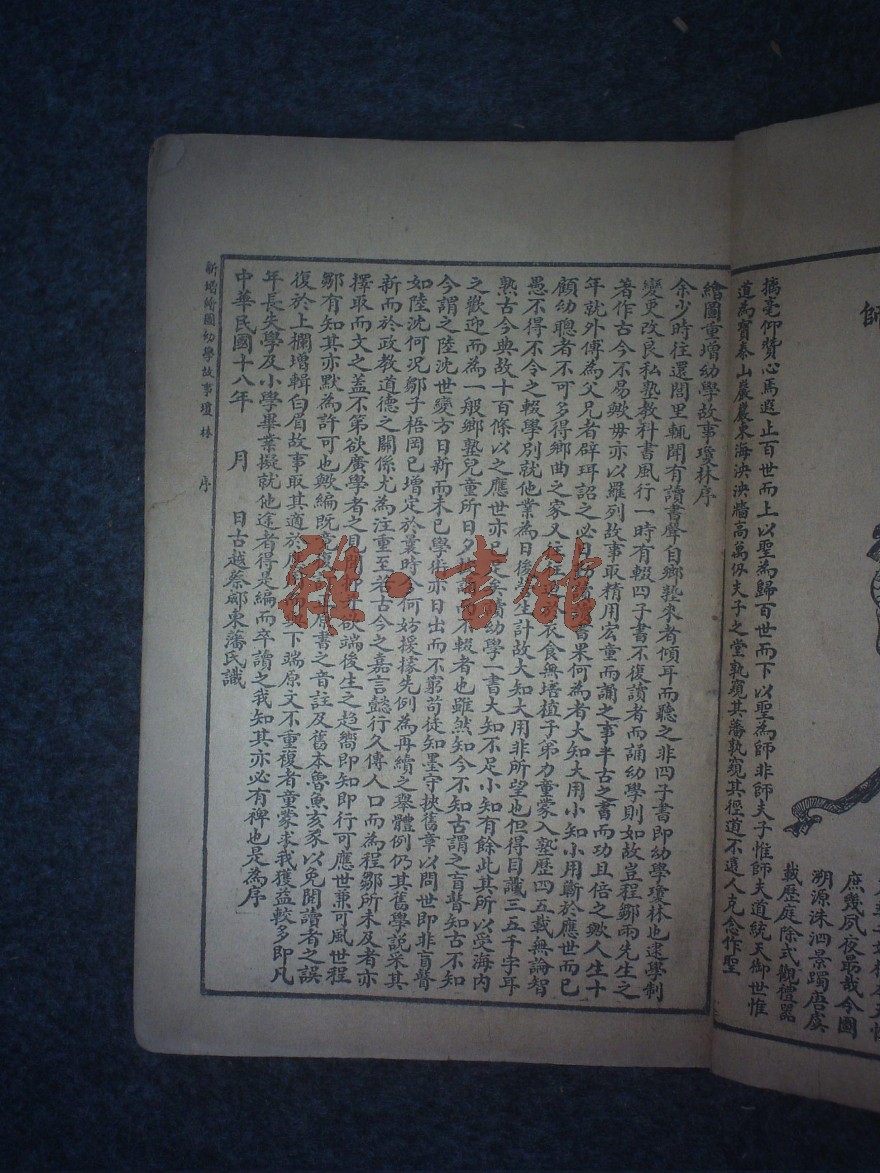 師
摛毫仰贊心焉遐止百世而上以聖為歸百世而下以聖為師非師夫子惟師夫道統天御世惟
道為寶泰山巖巖東海泱泱牆高萬仞夫子之堂孰窺其藩孰窺其徑道不遠人克念作聖
庶幾夙夜勗哉令圖
溯源洙泗景躅唐虞
載歷庭除式觀禮器
繪圖重增幼學故事瓊林序
余少時往還閭里輒聞有讀書聲自鄉塾來者傾耳而聽之非四子書即幼學瓊林也逮學制
變更改良私塾教科書風行一時有輟四子書不復讀者而誦幼學則如故豈程鄒兩先生之
著作古今不易歟毋亦以羅列故事取精用宏童而誦之事半古之書而功且倍之歟人生十
年就外傅為父兄者辟珥詔之必曰書果何為者大知大用小知小用蘄於應世而已
顧幼聰者不可多得鄉曲之家又衣食無培植子弟力童蒙入塾歷四五載無論智
愚不得不令之輟學別就他業為日後生計故大知大用非所望也但得目識三五千字耳
熟古今典故十百條以之應世亦矣幼學一書大知不足小知有餘此其所以受海內
之歡迎而為一般鄉塾兒童所日夕而不輟者也雖然知今不知古謂之盲瞽知古不知
今謂之陸沈世變方日新而未已學術亦日出而不窮苟徒知墨守挾舊章以問世即非盲瞽
如陸沈何況鄒子梧岡已增定於曩時今何妨援據先例為再續之舉體例仍其舊學說采其
新而於政教道德之關係尤為注重至若古今之嘉言懿行久傳人口而為程鄒所未及者亦
擇取而文之蓋不第欲廣學者之見聞欲端後生之趨嚮即知即行可應世兼可風世程
鄒有知其亦默為許可也歟編既竟原書之音註及舊本魯魚亥豕以免閱讀者之誤
復於上欄增輯白眉故事取其適於其下端原文不重複者童蒙求我獲益較多即凡
年長失學及小學畢業擬就他途者得是編而卒讀之我知其亦必有裨也是為序
中華民國十八年 月 日古越蔡郕東藩氏識
新增繪圖幼學故事瓊林 序
雜·書館